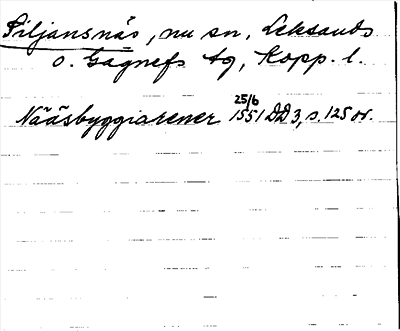 Siljansnäs, nu sn, Leksands
o. Gagnefs tg, Kopp. l.
Nääsbyggiarener 25/6 1551 DD 3, s. 125 or.